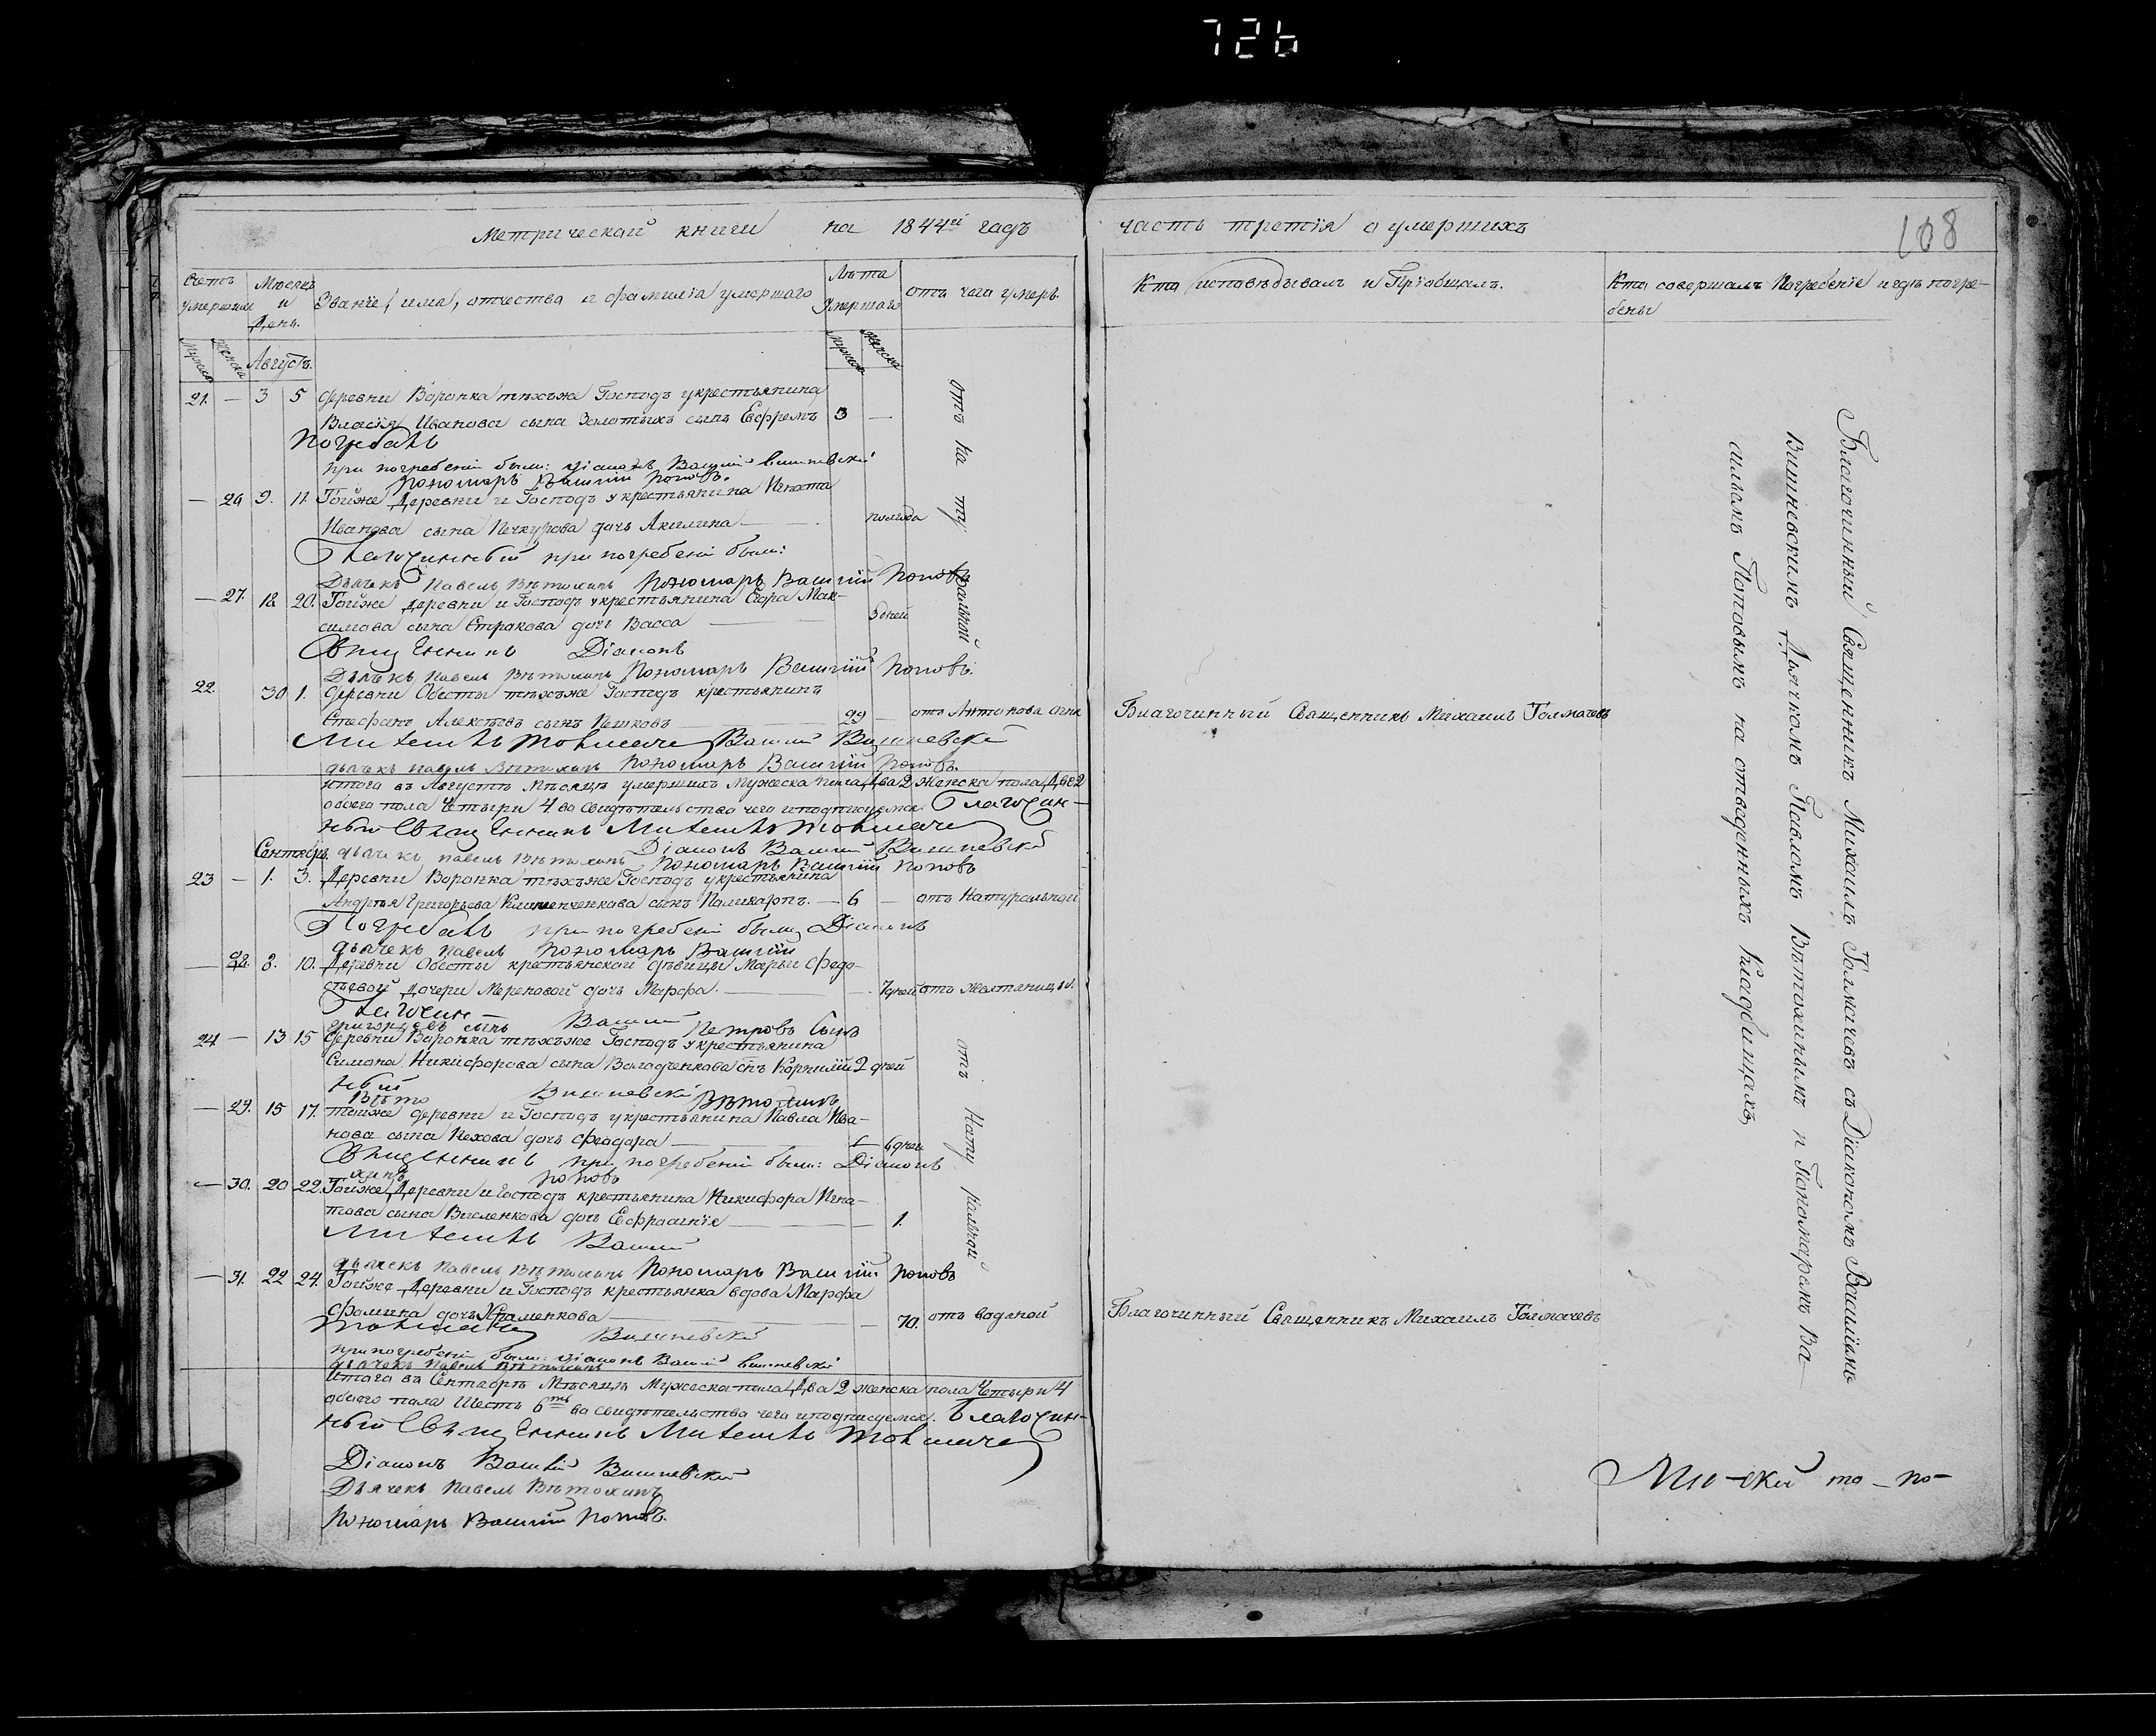 726
Метрической книги на 1844й годъ
часть третія о умершихъ
108
Счетъ умершихъ
Мѣсяцъ и День.
Званіе, имя, отчество и фамилія умершаго
Лѣта Умершаго
отъ чего умеръ.
Кто исповѣдывалъ и Пріобщалъ.
Кто совершалъ Погребеніе и гдѣ погре-
бены
мужска женска
Августъ.
мужска женска
21. — 3 5 деревни Воронка тѣхъже Господъ укрестьянина
Власія Иванова сына Золотыхъ сынъ Ефремъ 3 —
отъ на ту ральной
Погребалъ
при погребеніи были: діаконъ Василій Вишневскій
пономарь Василій Поповъ.
— 26 9. 11. Тойже Деревни и Господъ укрестьянина Игната
Иванова сына Печкурова дочь Акилина — полгода
Благочинный при погребеніи были:
Дьячекъ Павелъ Вѣтохинъ Пономарь Василій Поповъ
— 27. 18. 20. Тойже деревни и Господъ укрестьянина Егора Мак-
симова сына Стракова дочь Васса — 5 дней
Священникъ Діаконъ
Дьячекъ Павелъ Вѣтохинъ Пономарь Василій Поповъ.
22. 30 1. деревни Обесты тѣхъже Господъ крестьянинъ
Стефанъ Алексѣевъ сынъ Пешковъ — 29 — отъ Антонова огня
Благочинный Священникъ Михаилъ Толмачевъ
Михаилъ Толмачевъ Василій Вишневскій
дьячекъ Павелъ Вѣтохинъ Пономарь Василій Поповъ.
Итого въ Августѣ Мѣсяцѣ умершихъ мужеска пола Два 2 Женска пола Двѣ 2
обоего пола Четыри 4 во свидѣтельство чего и подписуемся Благочин-
ный Священникъ Михаилъ Толмачевъ
Діаконъ Василій Вишневскій
Сентябрь. дьячекъ Павелъ Вѣтохинъ Пономарь Василій Поповъ
23 — 1. 3. Деревни Воронка тѣхъже Господъ укрестьянина
Андрея Григорьева сынъ Поликарпъ. — 6 — отъ Натуральной
Погребалъ при погребеніи были Діаконъ
дьячекъ Павелъ Пономарь Василій
— 28. 8. 10. Деревни Обесты крестьянской дѣвицы Марьи Федо-
сѣевой Дочери Мереновой дочь Марфа. — 7 дней отъ желтяницы.
Благочин- Василій
Петровъ Сынъ
24 — 13 15 деревни Воронка тѣхъже Господъ укрестьянина
Симона Никифорова сына Володченкова сынъ Корнилій 2 дней
отъ Нату ральной
ный Вишневскій
Вѣто Вѣтохинъ
— 29. 15 17. тойже деревни и Господъ укрестьянина Павла Ива-
нова сына Пехова дочь Феодора — 6 дней
Священникъ при погребеніи были: Діаконъ
хинъ Поповъ
— 30. 20 22. Тойже Деревни и Господъ крестьянина Никифора Игна-
това сына дочь Ефросинія — 1.
Михаилъ Василій
дьячекъ Павелъ Вѣтохинъ Пономарь Василій Поповъ
— 31. 22 24. Тойже Деревни и Господъ крестьянка вдова Марфа
Фомина дочь Храменкова — 70. отъ водяной
Благочинный Священникъ Михаилъ Толмачевъ
Толмачевъ Вишневскій
при погребеніи были: діаконъ Василій Вишневскій
дьячекъ Павелъ Вѣтохинъ
Итого въ Сентябрѣ Мѣсяцѣ Мужеска пола Два 2 женска пола Четыри 4
обоего пола Шесть 6ть во свидѣтельство чего и подписуемся. Благочин-
ный Священникъ Михаилъ Толмачевъ
Діаконъ Василій Вишневскій
Дьячекъ Павелъ Вѣтохинъ
Пономарь Василій Поповъ.
Благочинный Священникъ Михаилъ Толмачевъ съ Діакономъ Василіемъ
Вишневскимъ Дьячкомъ Павломъ Вѣтохинымъ и Пономаремъ Ва-
силіемъ Поповымъ на отведенныхъ Кладбищахъ